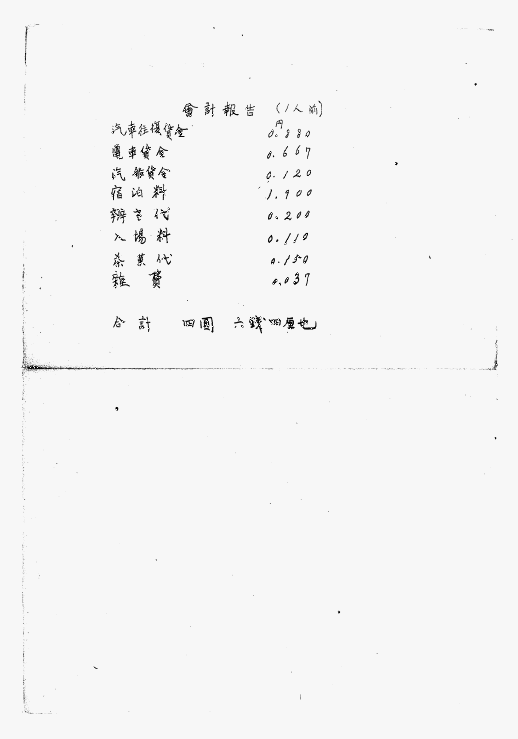 會計報告 (1人前)
汽車往復賃金 0.880円
電車賃金 0.667
汽船賃金 0.120
宿泊料 1.900
辨当代 0.200
入場料 0.110
茶菓代 0.150
雜費 0.037
合計 四圓 六錢四厘也